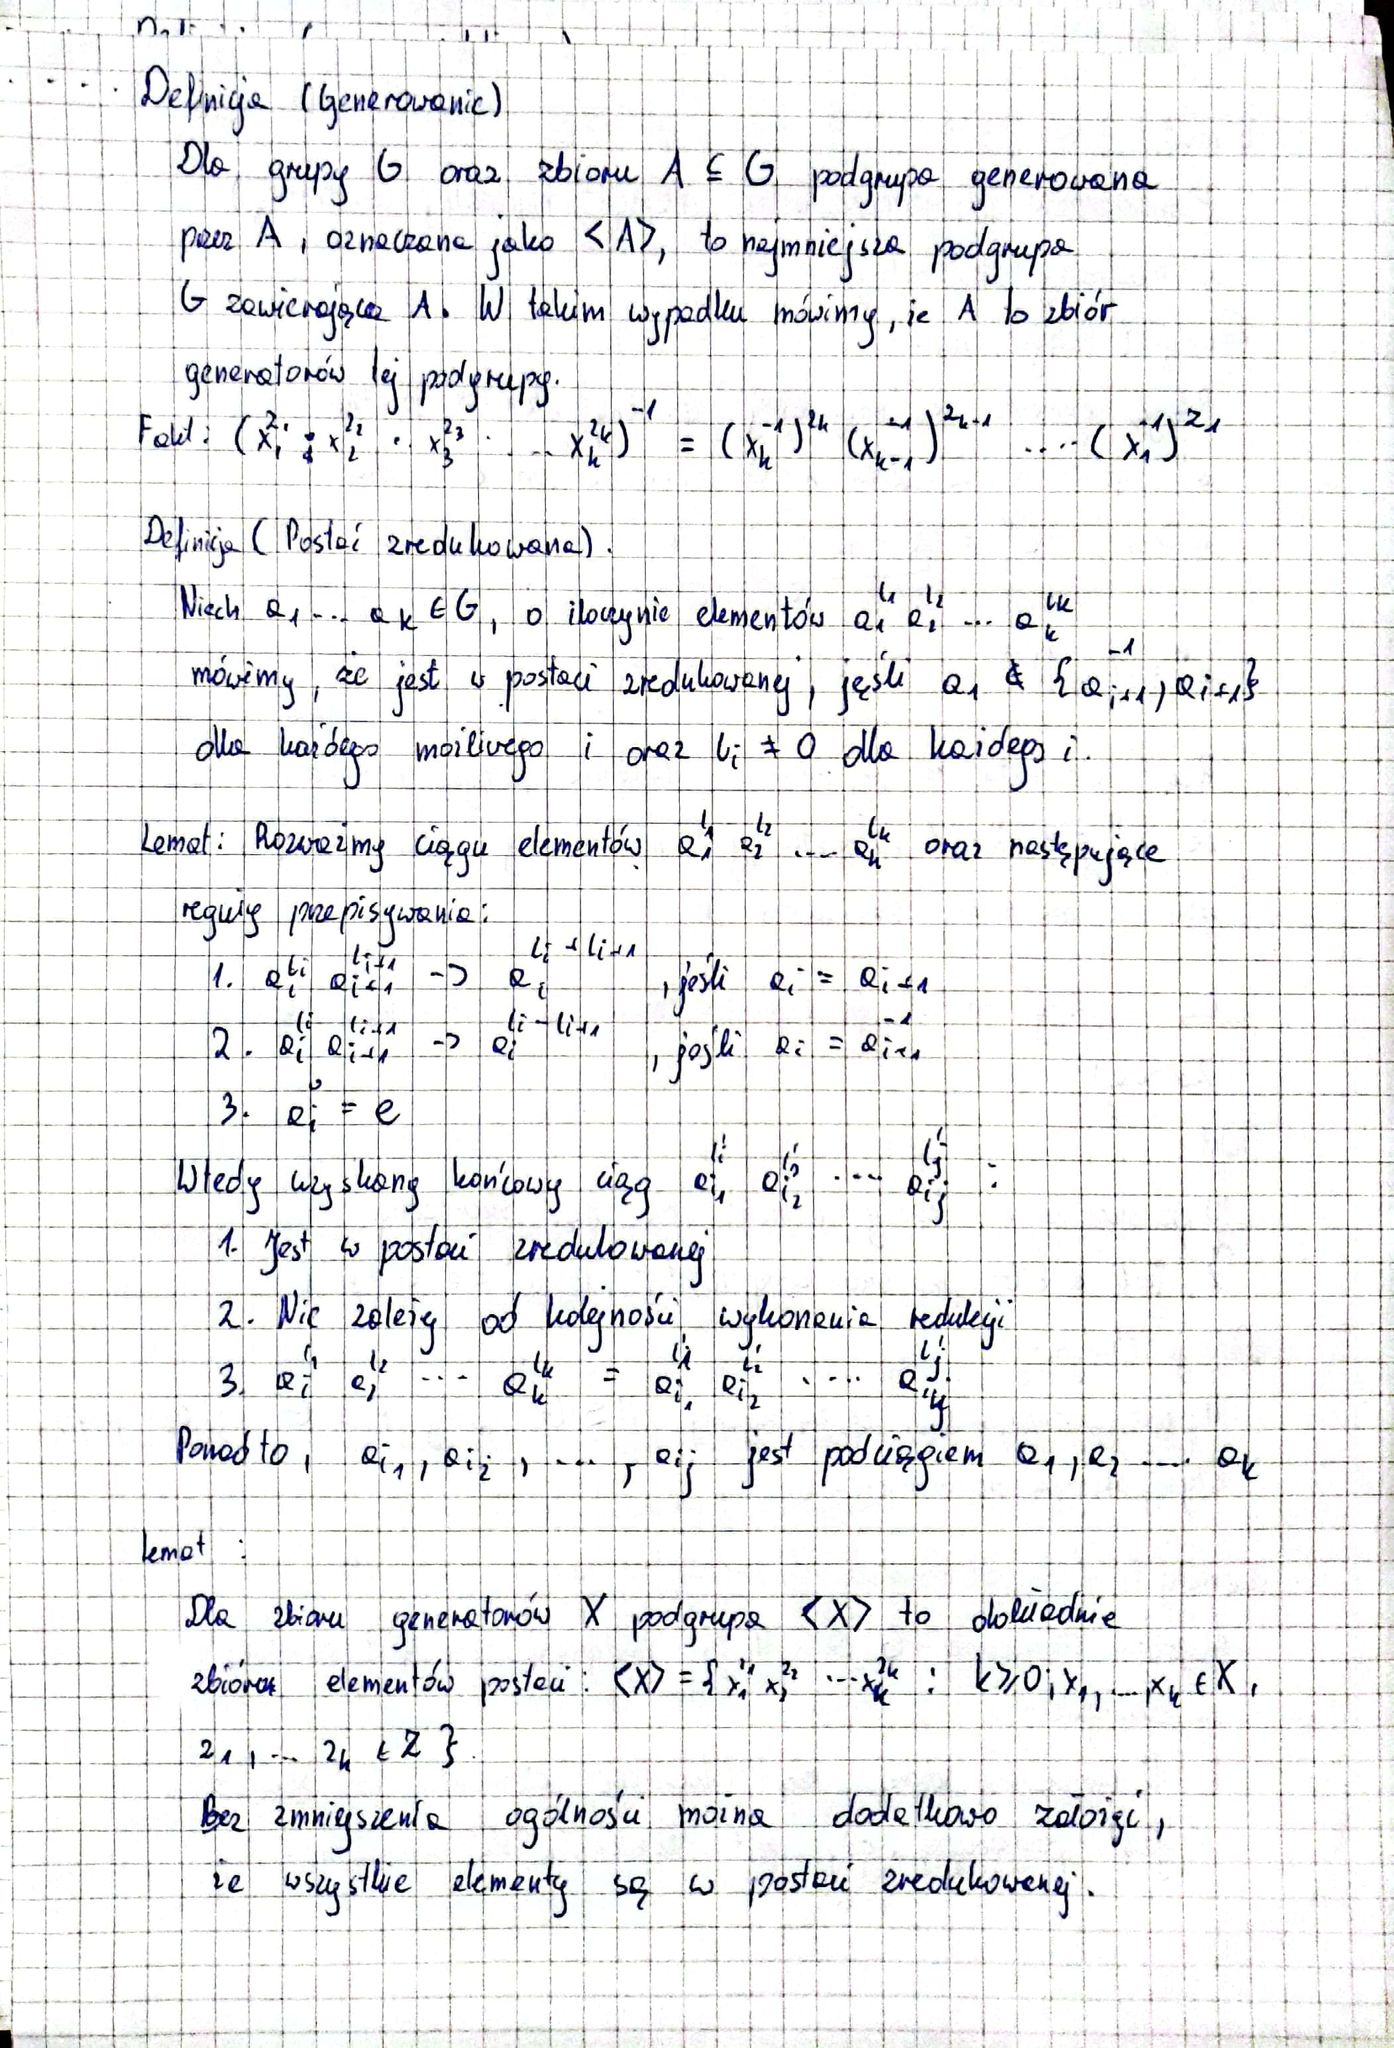 Definicja (Generowanie)
Dla grupy G oraz zbioru A ⊆ G podgrupa generowana
przez A, oznaczana jako <A>, to najmniejsza podgrupa
G zawierająca A. W takim wypadku mówimy, że A to zbiór
generatorów tej podgrupy.
Fakt: (x_1^{z_1} · x_2^{z_2} · x_3^{z_3} · ... x_k^{z_k})^{-1} = (x_k^{-1})^{z_k} (x_{k-1}^{-1})^{z_{k-1}} .... (x_1^{-1})^{z_1}
Definicja (Postać zredukowana).
Niech a_1 ... a_k ∈ G, o iloczynie elementów a_1^{l_1} a_2^{l_2} ... a_k^{l_k}
mówimy, że jest w postaci zredukowanej, jeśli a_1 ∉ {a_{i+1}^{-1}, a_{i+1}}
dla każdego możliwego i oraz l_i ≠ 0 dla każdego i.
Lemat: Rozważmy ciągu elementów a_1^{l_1} a_2^{l_2} .... a_k^{l_k} oraz następujące
reguły przepisywania:
1. a_i^{l_i} a_{i+1}^{l_{i+1}} -> a_i^{l_i + l_{i+1}} , jeśli a_i = a_{i+1}
2. a_i^{l_i} a_{i+1}^{l_{i+1}} -> a_i^{l_i - l_{i+1}} , jeśli a_i = a_{i+1}^{-1}
3. a_i^0 = e
Wtedy uzyskany końcowy ciąg a_{i_1}^{l'_1} a_{i_2}^{l'_2} .... a_{i_j}^{l'_j} :
1. Jest w postaci zredukowanej
2. Nie zależy od kolejności wykonania redukcji
3. a_1^{l_1} a_2^{l_2} ... a_k^{l_k} = a_{i_1}^{l'_1} a_{i_2}^{l'_2} .... a_{i_j}^{l'_j}
Ponadto, a_{i_1}, a_{i_2}, ..., a_{i_j} jest podciągiem a_1, a_2 .... a_k
Lemat :
Dla zbioru generatorów X podgrupa <X> to dokładnie
zbiór elementów postaci: <X> = {x_1^{z_1} x_2^{z_2} ... x_k^{z_k} : k ⩾ 0, x_1, ..., x_k ∈ X,
z_1, ... z_k ∈ Z }.
Bez zmniejszenia ogólności można dodatkowo założyć,
że wszystkie elementy są w postaci zredukowanej.